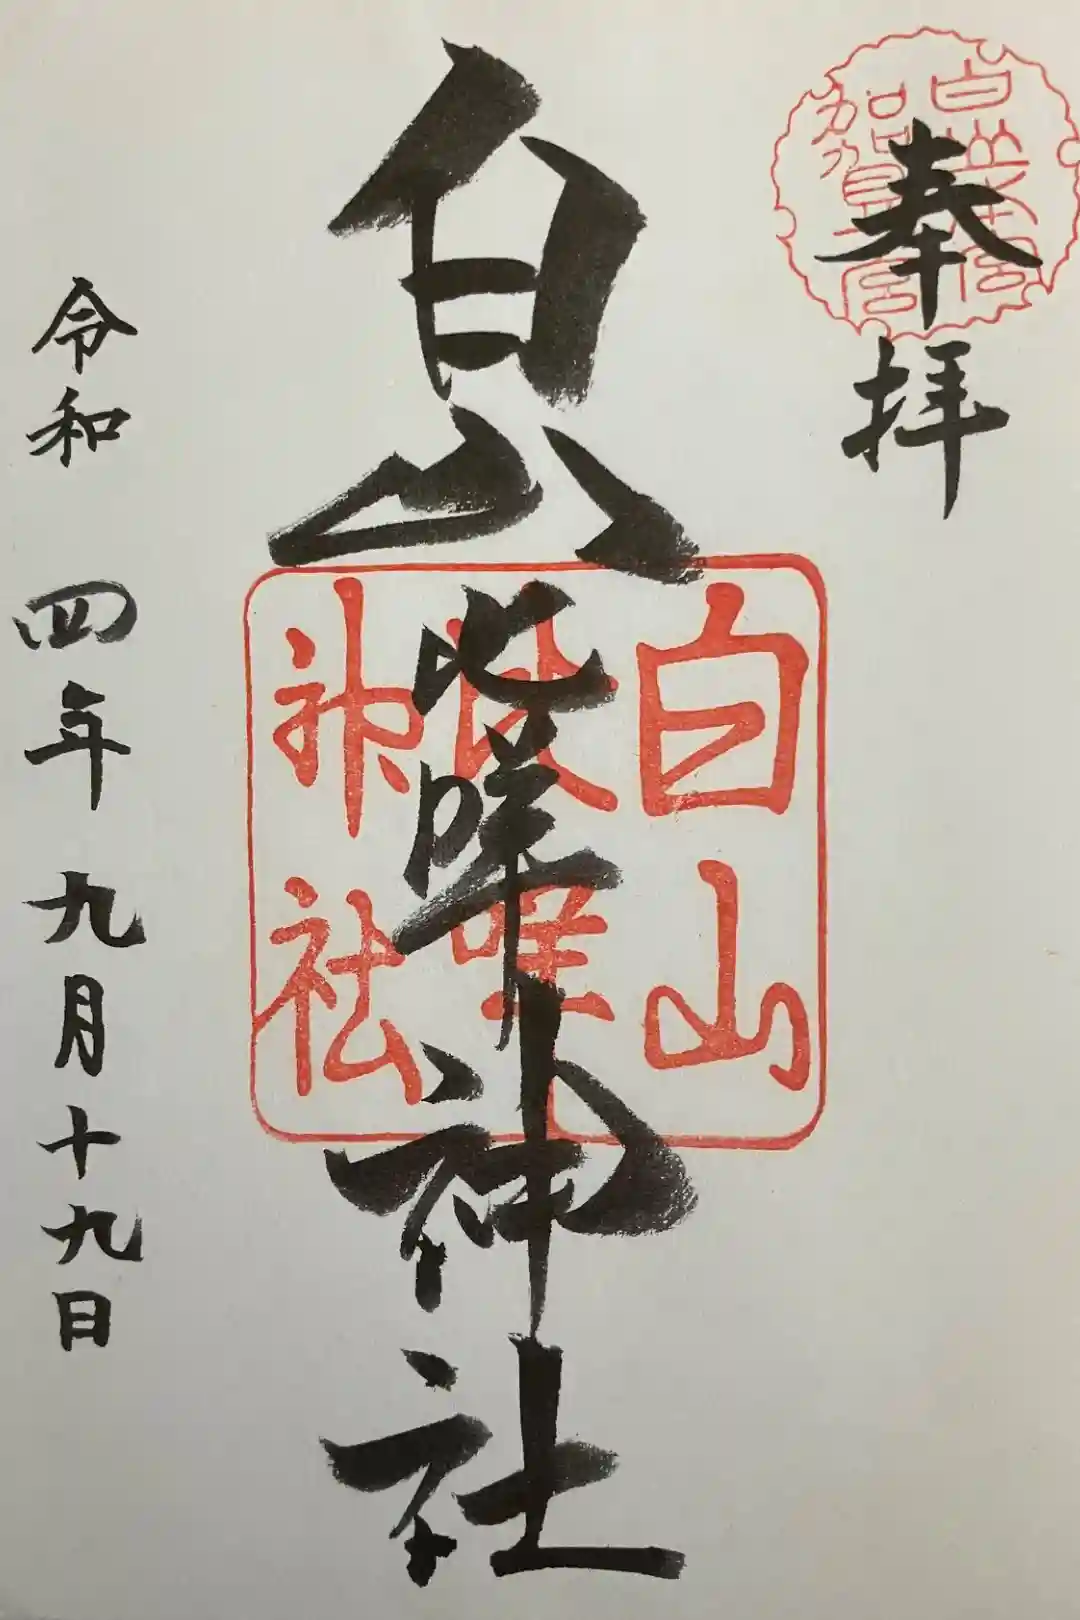 白山本宮
加賀一宮
奉拝
白山比咩神社
白山
比咩
神社
令和四年九月十九日